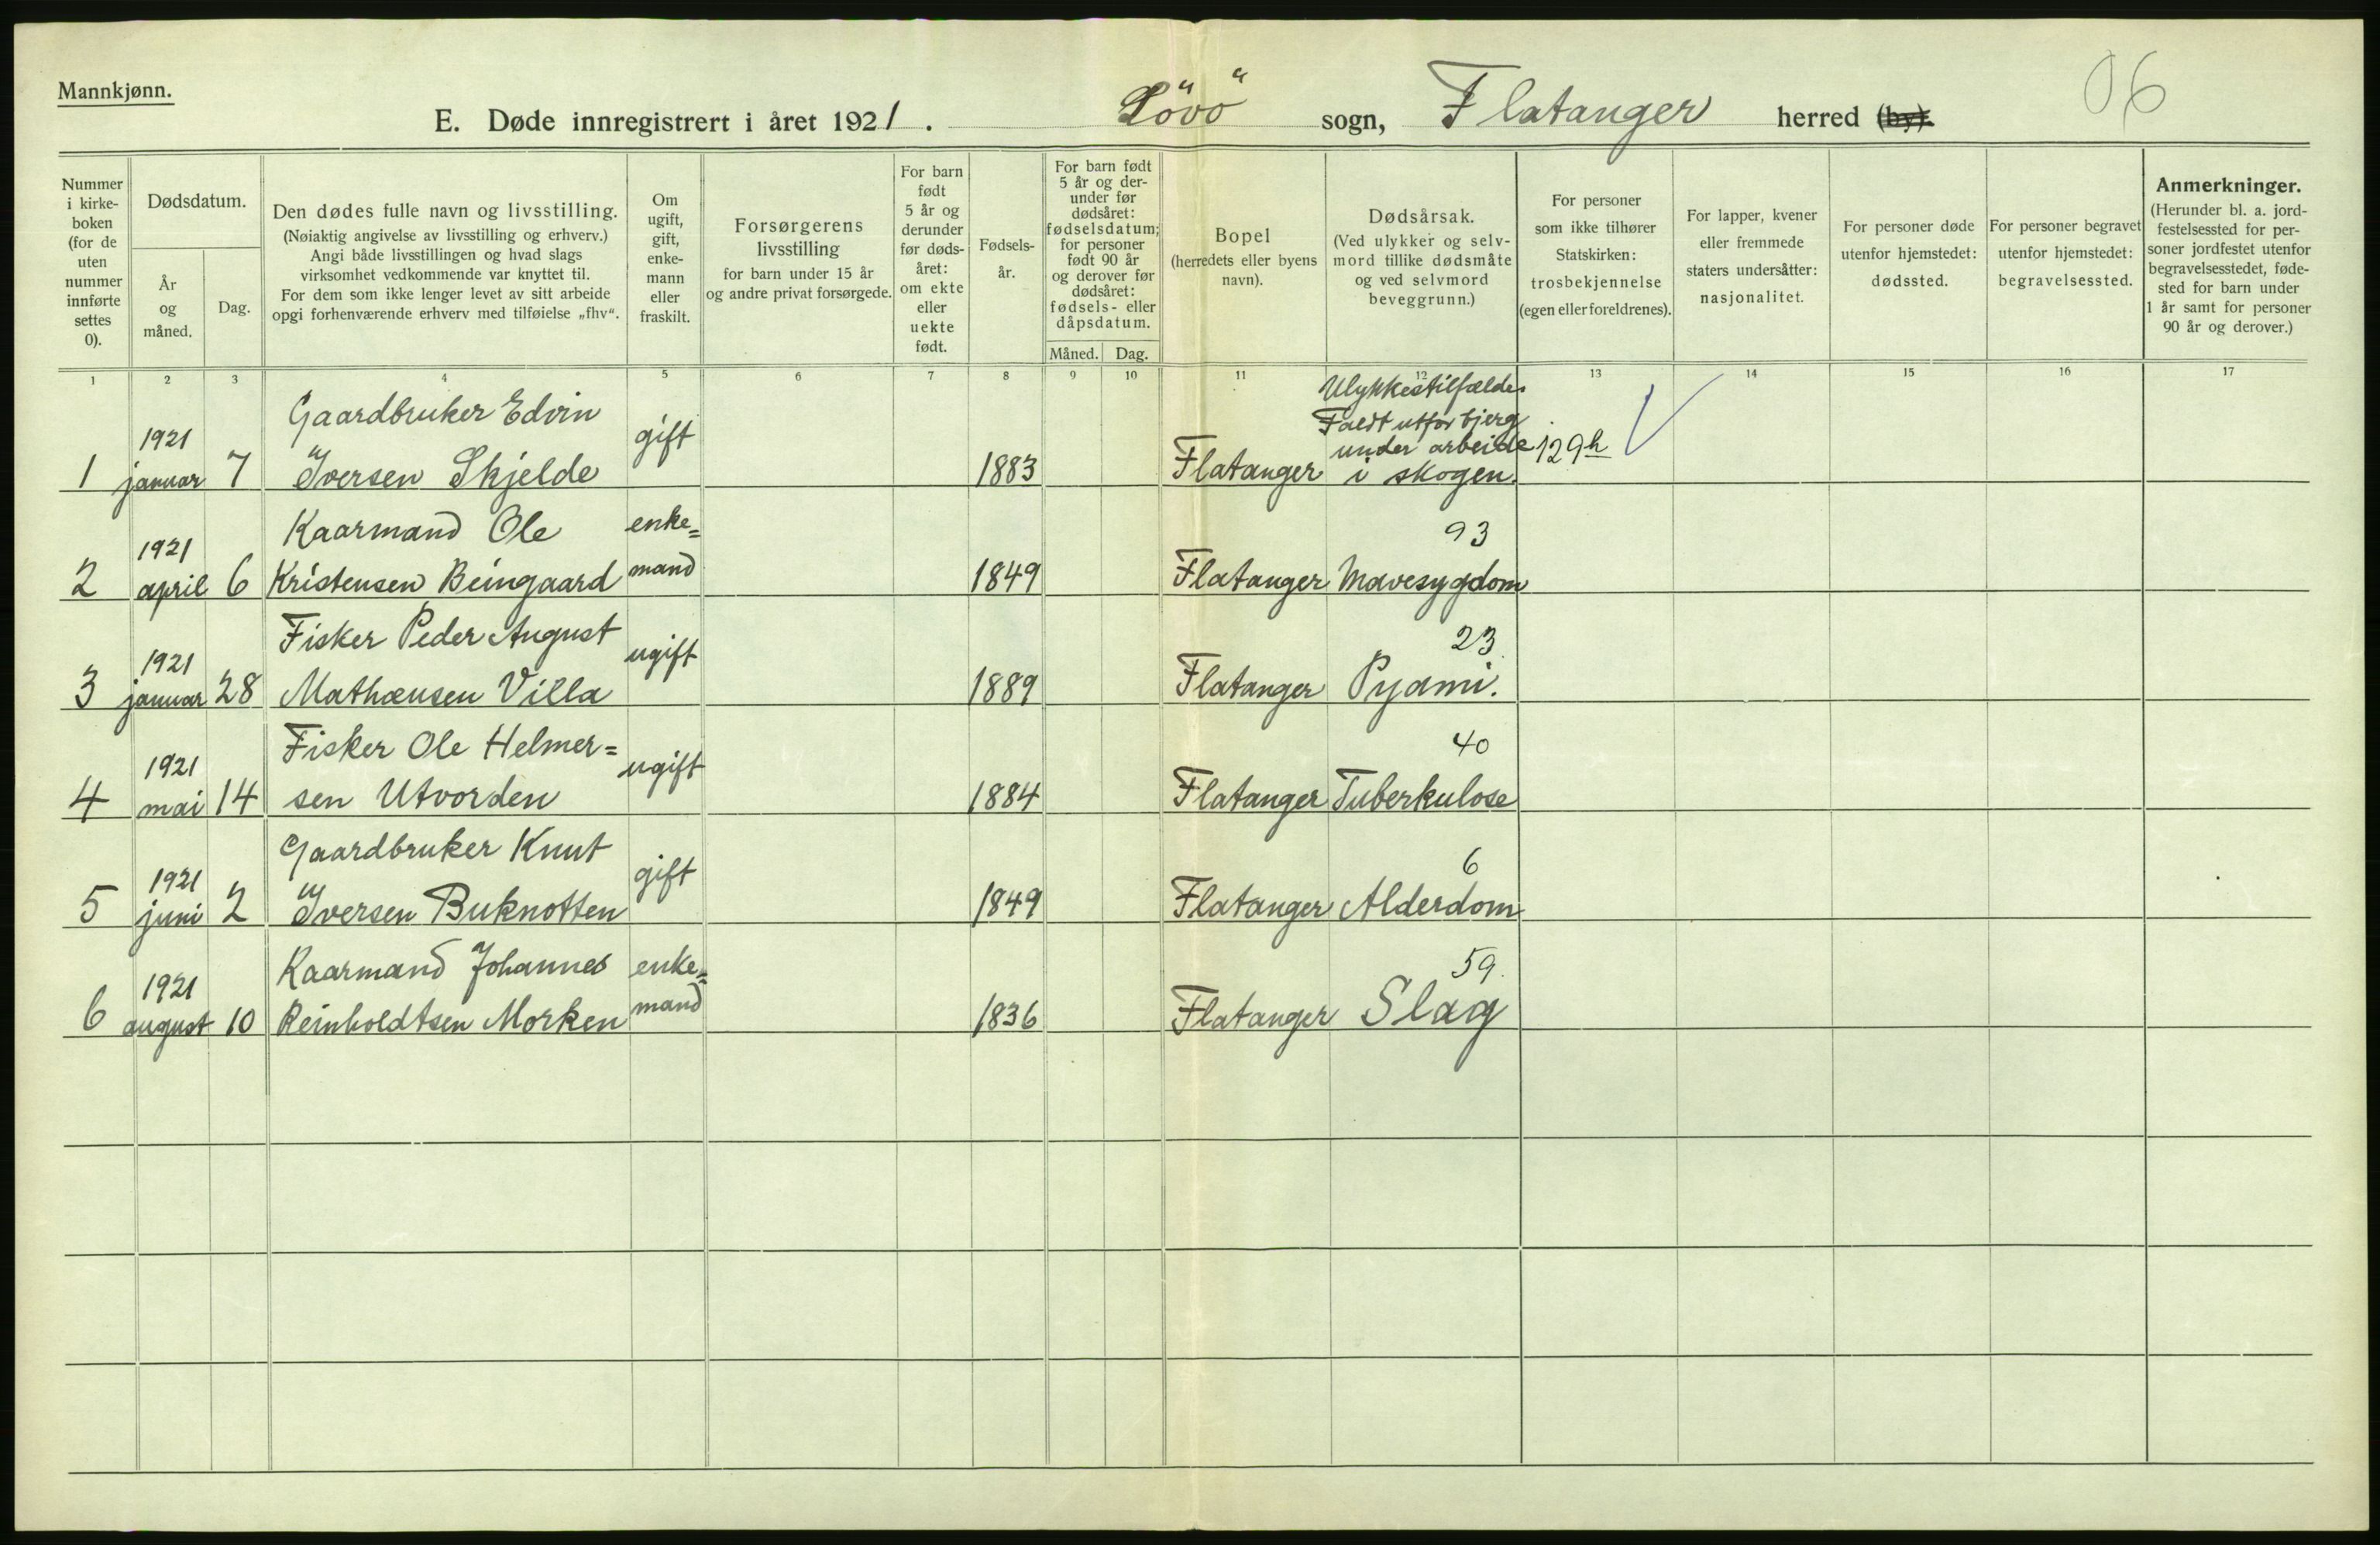 Mannkjønn.
06
E. Døde innregistrert i året 1921. Lövö sogn, Flatanger herred (by).
Nummer i kirkeboken (for de uten nummer innførte settes 0).
Dødsdatum.
År og måned.
Dag.
Den dødes fulle navn og livsstilling.
(Nøiaktig angivelse av livsstilling og erhverv.)
Angi både livsstillingen og hvad slags
virksomhet vedkommende var knyttet til.
For dem som ikke lenger levet av sitt arbeide
opgi forhenværende erhverv med tilføielse „fhv“.
Om ugift, gift, enkemann eller fraskilt.
Forsørgerens livsstilling
for barn under 15 år
og andre privat forsørgede.
For barn født 5 år og derunder før dødsåret: om ekte eller uekte født.
Fødselsår.
For barn født 5 år og derunder før dødsåret: fødselsdatum; for personer født 90 år og derover før dødsåret: fødsels- eller dåpsdatum.
Måned. Dag.
Bopel
(herredets eller byens navn).
Dødsårsak.
(Ved ulykker og selvmord tillike dødsmåte og ved selvmord beveggrunn.)
For personer som ikke tilhører Statskirken: trosbekjennelse (egen eller foreldrenes).
For lapper, kvener eller fremmede staters undersåtter: nasjonalitet.
For personer døde utenfor hjemstedet: dødssted.
For personer begravet utenfor hjemstedet: begravelsessted.
Anmerkninger.
(Herunder bl. a. jordfestelsessted for personer jordfestet utenfor begravelsesstedet, fødested for barn under 1 år samt for personer 90 år og derover.)
1 2 3 4 5 6 7 8 9 10 11 12 13 14 15 16 17
Ulykkestilfælde.
Gaardbruker Edvin
Faldt utfor bjerg
1921 gift under arbeide 129h
1 januar 7 Iversen Skjelde 1883 Flatanger i skogen.
Kaarmand Ole enke= 93
1921
2 april 6 Kristensen Beingaard mand 1849 Flatanger Mavesygdom
Fisker Peder August 23
1921 ugift
3 januar 28 Mathæusen Villa 1889 Flatanger Pyæmi.
Fisker Ole Helmer= 40
1921 ugift
4 mai 14 sen Utvorden 1884 Flatanger Tuberkulose
Gaardbruker Knut 6
1921 gift
5 juni 2 Iversen Buknotten 1849 Flatanger Alderdom
Kaarmand Johannes enke= 59.
1921
6 august 10 Reinholdtsen Morken mand 1836 Flatanger Slag